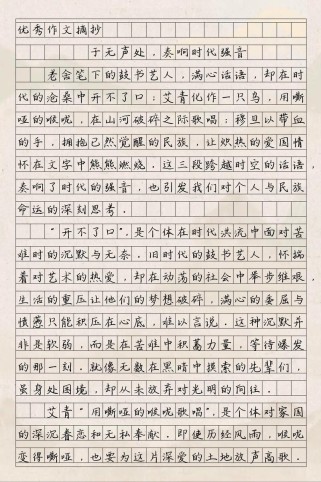 优秀作文摘抄
于无声处，奏响时代强音
老舍笔下的鼓书艺人，满心话语，却在时
代的沧桑中开不了口；艾青化作一只鸟，用嘶
哑的喉咙，在山河破碎之际歌唱；穆旦以带血
的手，拥抱已然觉醒的民族，让炽热的爱国情
怀在文字中熊熊燃烧。这三段跨越时空的话语，
奏响了时代的强音，也引发我们对个人与民族
命运的深刻思考。
“开不了口”，是个体在时代洪流中面对苦
难时的沉默与无奈。旧时代的鼓书艺人，怀揣
着对艺术的热爱，却在动荡的社会中举步维艰，
生活的重压让他们的梦想破碎，满心的委屈与
愤懑只能积压在心底，难以言说。这种沉默并
非是软弱，而是在苦难中积蓄力量，等待爆发
的那一刻。就像无数在黑暗中摸索的先辈们，
虽身处困境，却从未放弃对光明的向往。
艾青“用嘶哑的喉咙歌唱”，是个体对家国
的深沉眷恋和无私奉献。即使历经风雨，喉咙
变得嘶哑，也要为这片深爱的土地放声高歌。